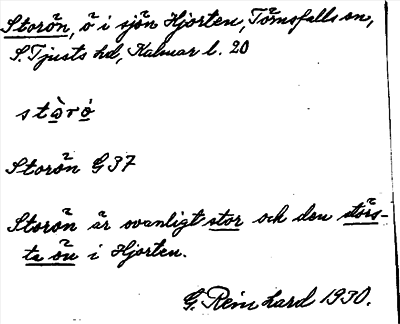 Storön, ö i sjön Hjorten, Törnsfalls sn,
S. Tjusts hd, Kalmar l. 20
Storön G 37
Storön är ovanligt stor och den störs-
ta ön i Hjorten.
G. Reinhard 1930.